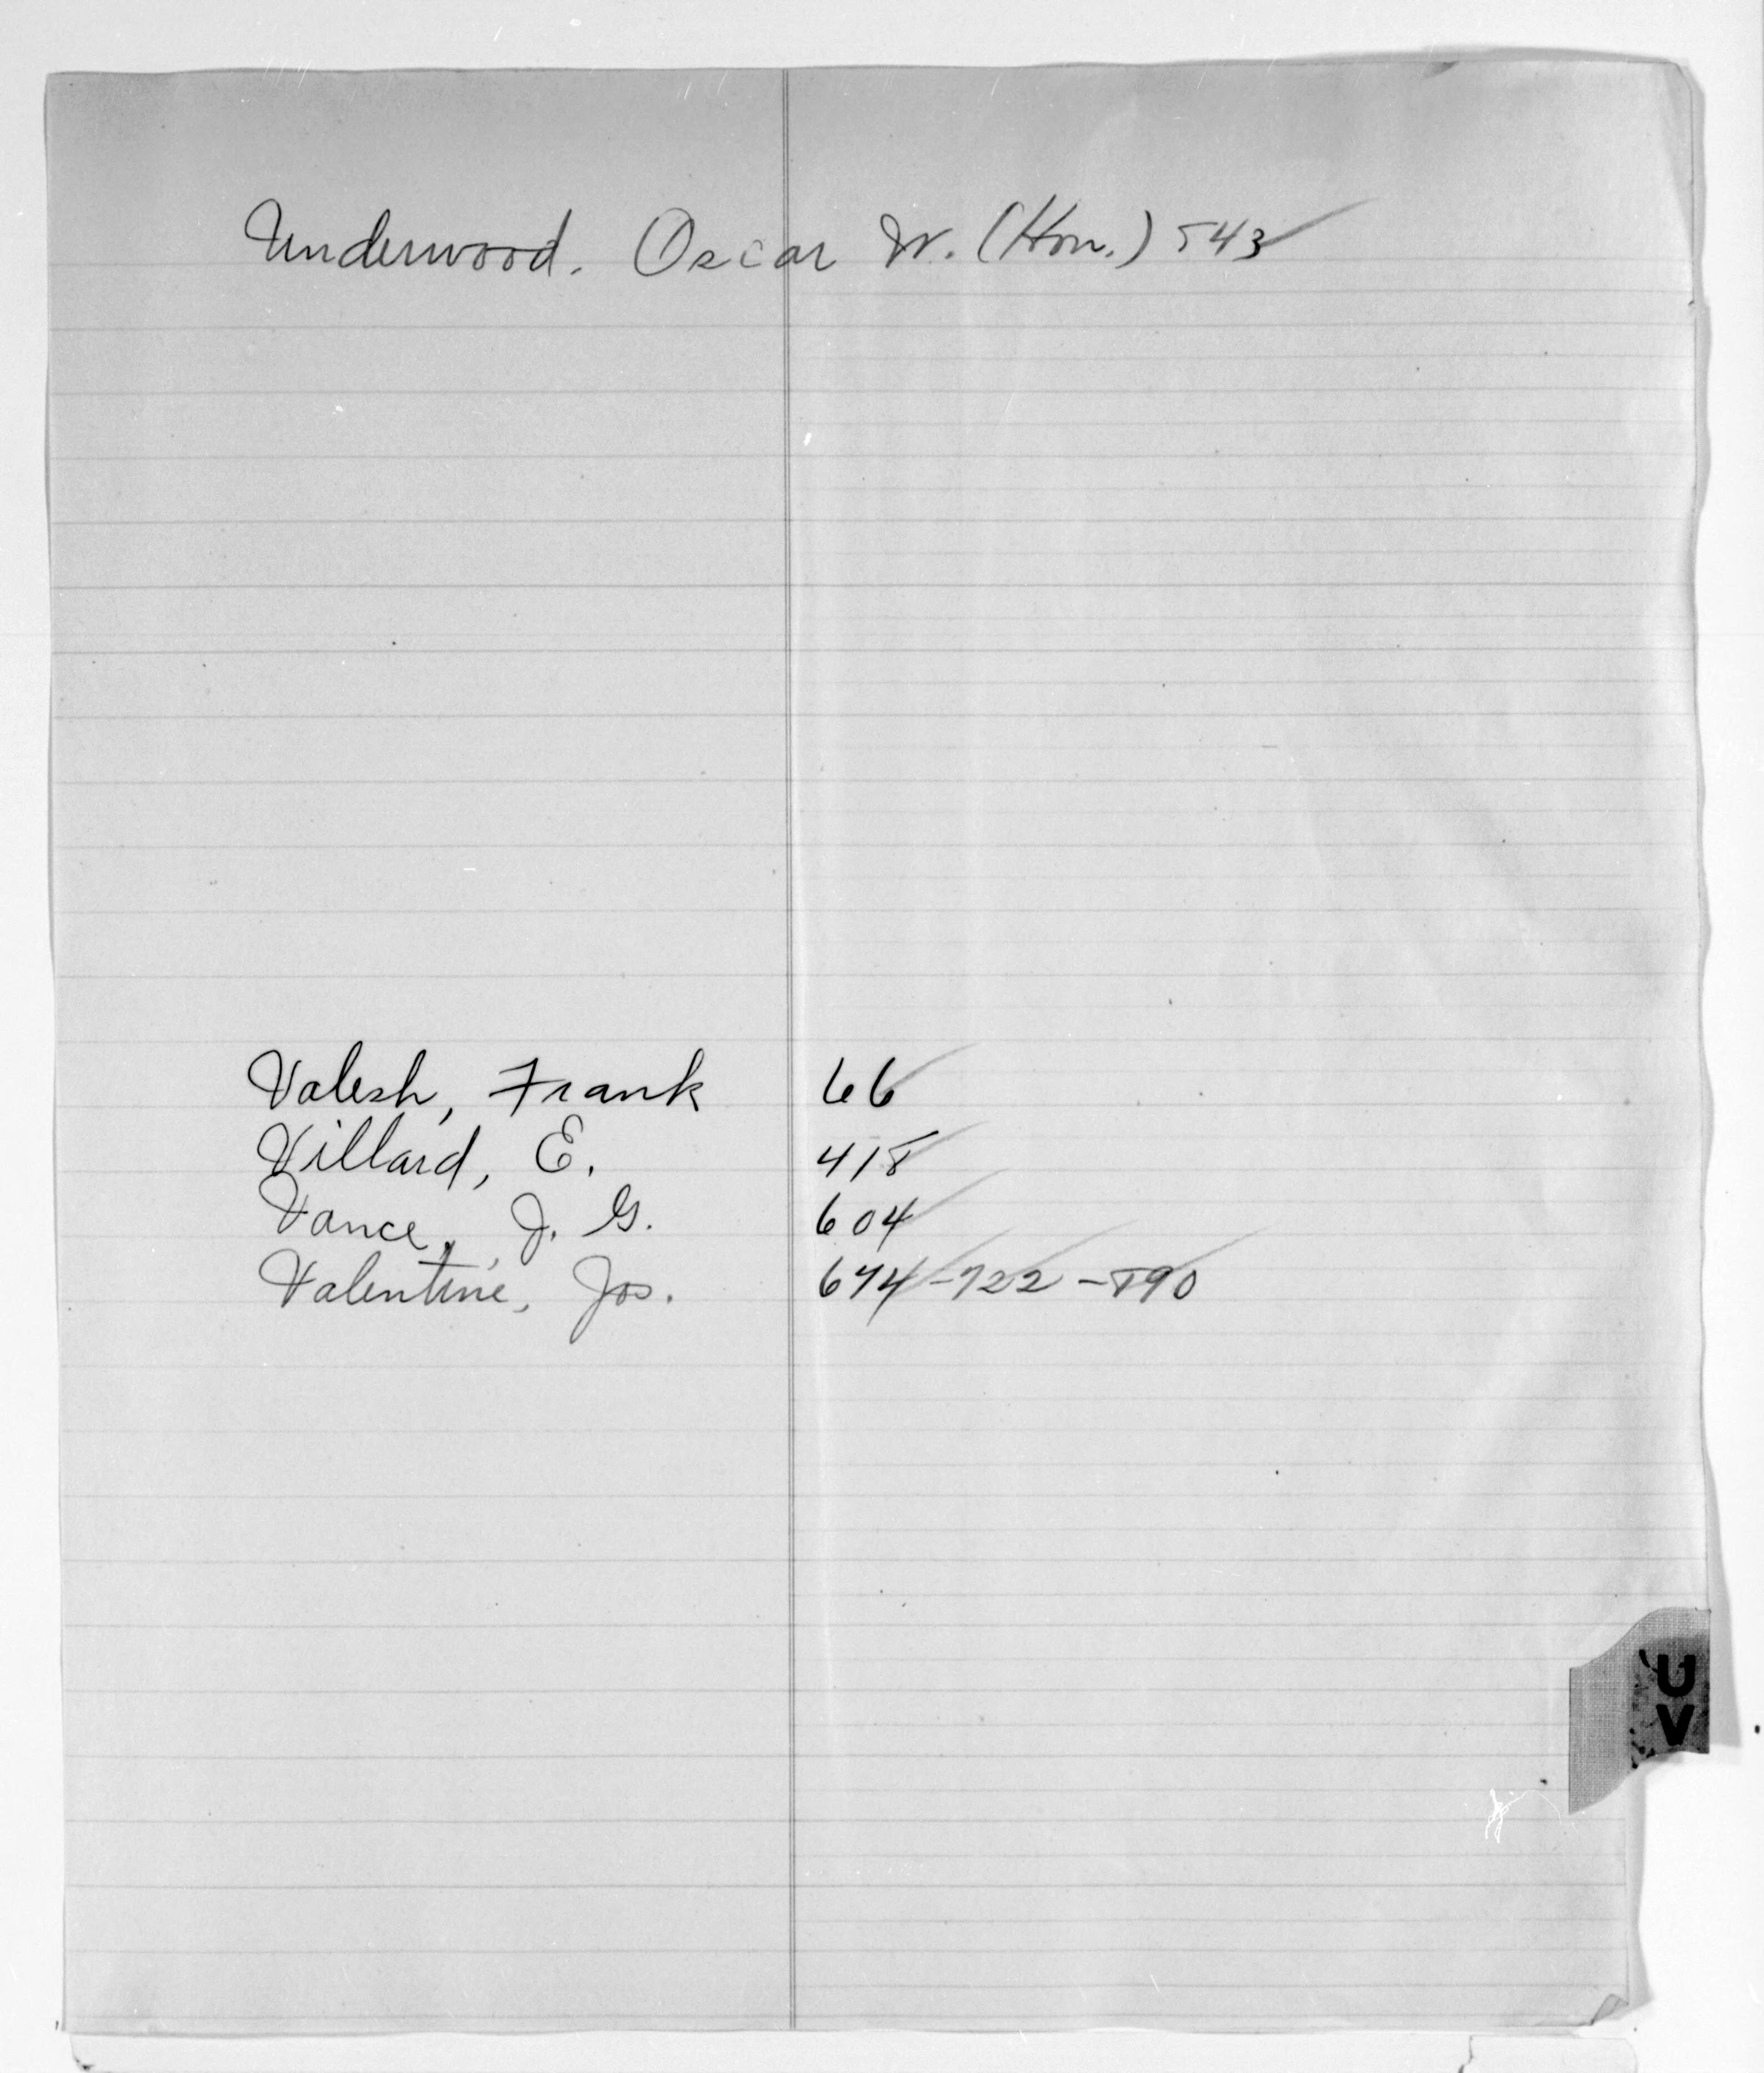 Underwood. Oscar W. (Hon.) 543
Valesh, Frank 66
Villard, E. 418
Vance, J. G. 604
Valentine, Jos. 674-722-890
U
V